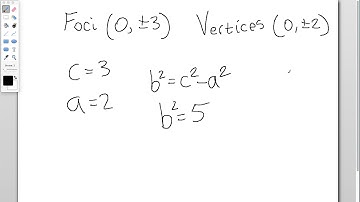 Foci (0, ±3) Vertices (0, ±2)
c = 3
a = 2
b² = c² - a²
b² = 5